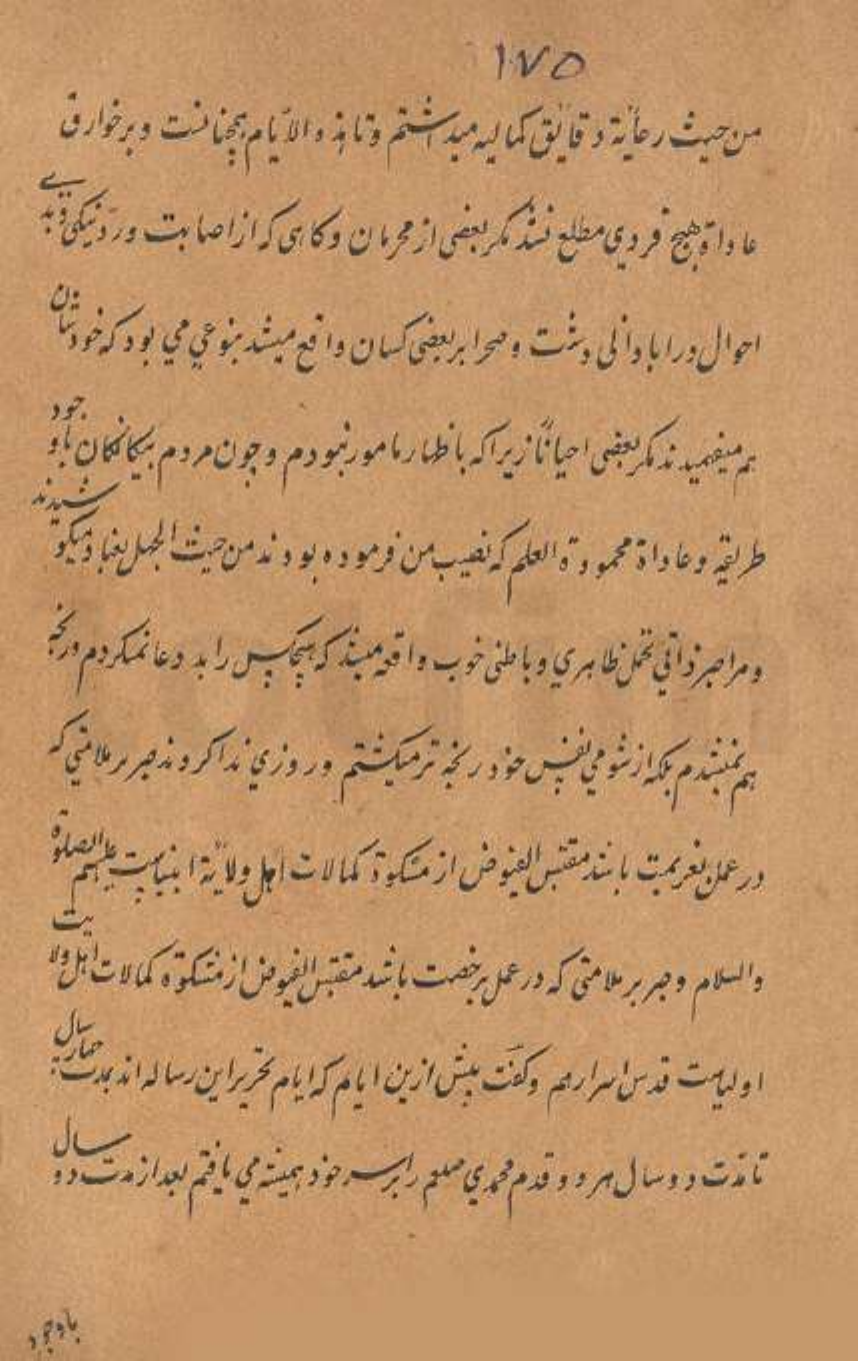 ۱۷۵
من حیث رعایة دقایق کمالیه میداشتم وتا هذه الایام همچنانست وبر خوارق
عاداة هیچ فردی مطلع نشد مکر بعضی از محرمان وکاهی که از اصابت ورد نیکی وبدی
احوال ورابادانی دشت وصحرا بر بعضی کسان واقع میشد بنوعی می بود که خودشان
هم میفهمیدند مکر بعضی احیاناً زیراکه باظهار مامور نبودم وچون مردم بیکانکان باوجود
طریقه وعاداة محمودة العلم که نصیب من فرموده بودند من حیث الجهل بغناد میکوشیدند
ومرا صبر ذاتی تحمل ظاهری وباطنی خوب واقعه میشد که هیچکس را بد دعا نمیکردم ورنجه
هم نمیشدم بلکه از شومی نفس خود رنجه تر میکشتم وروزی ندا کردند صبر بر ملامتی که
در عمل بعزیمت باشد مقتبس الفیوض از مشکوة کمالات اهل ولایة انبیاست علیهم الصلوة
والسلام وصبر بر ملامتی که در عمل برخصت باشد مقتبس الفیوض از مشکوة کمالات اهل ولایت
اولیاست قدس اسرارهم وکفت پیش ازین ایام که ایام تحریر این رساله اند بمدت چهار سال
تا مدت دو سال هر دو قدم محمدی صلعم را بر سر خود همیشه می یافتم بعد از مدت دو سال
باوجود